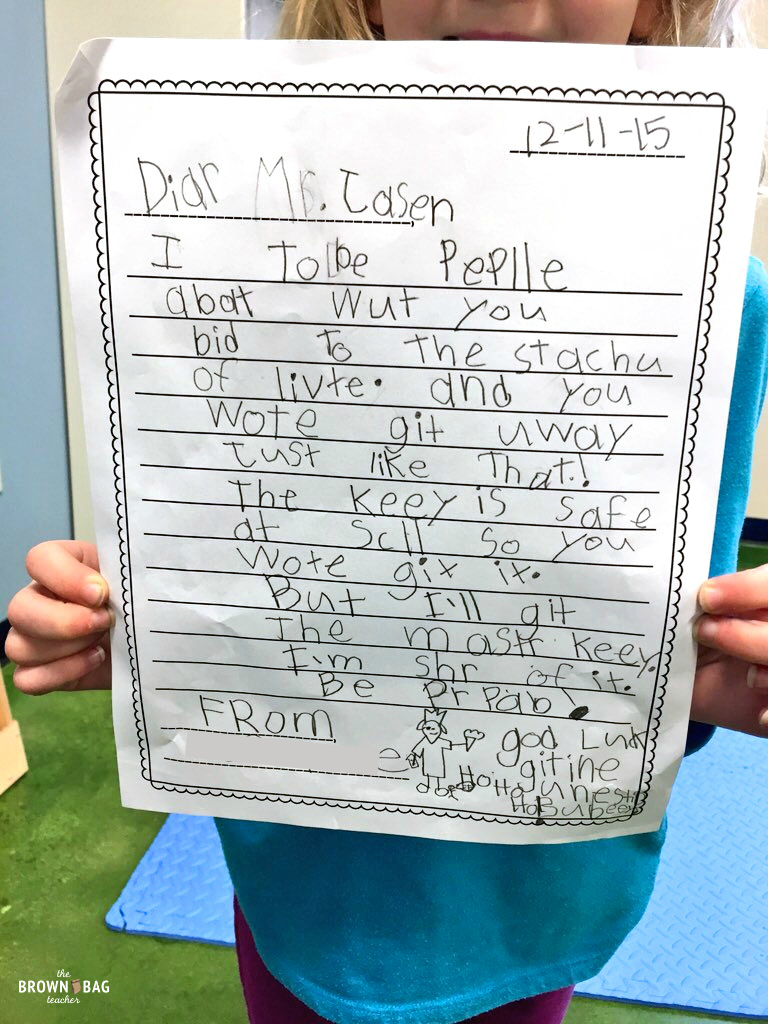 12-11-15
Diar Mr. Tasen
I Tolbe Peplle
abot Wut you
bid To The stachu
of livte. and you
Wote git uway
Tust like That.!
The keey is safe
at Scll so you
Wote git it.
But I'll git
The mastr keey.
I'm shr of it.
Be Pr Pab!
FRom
e
god Luk
gitine
Ho Ho June
Ho Bubees
the
BROWN BAG
teacher